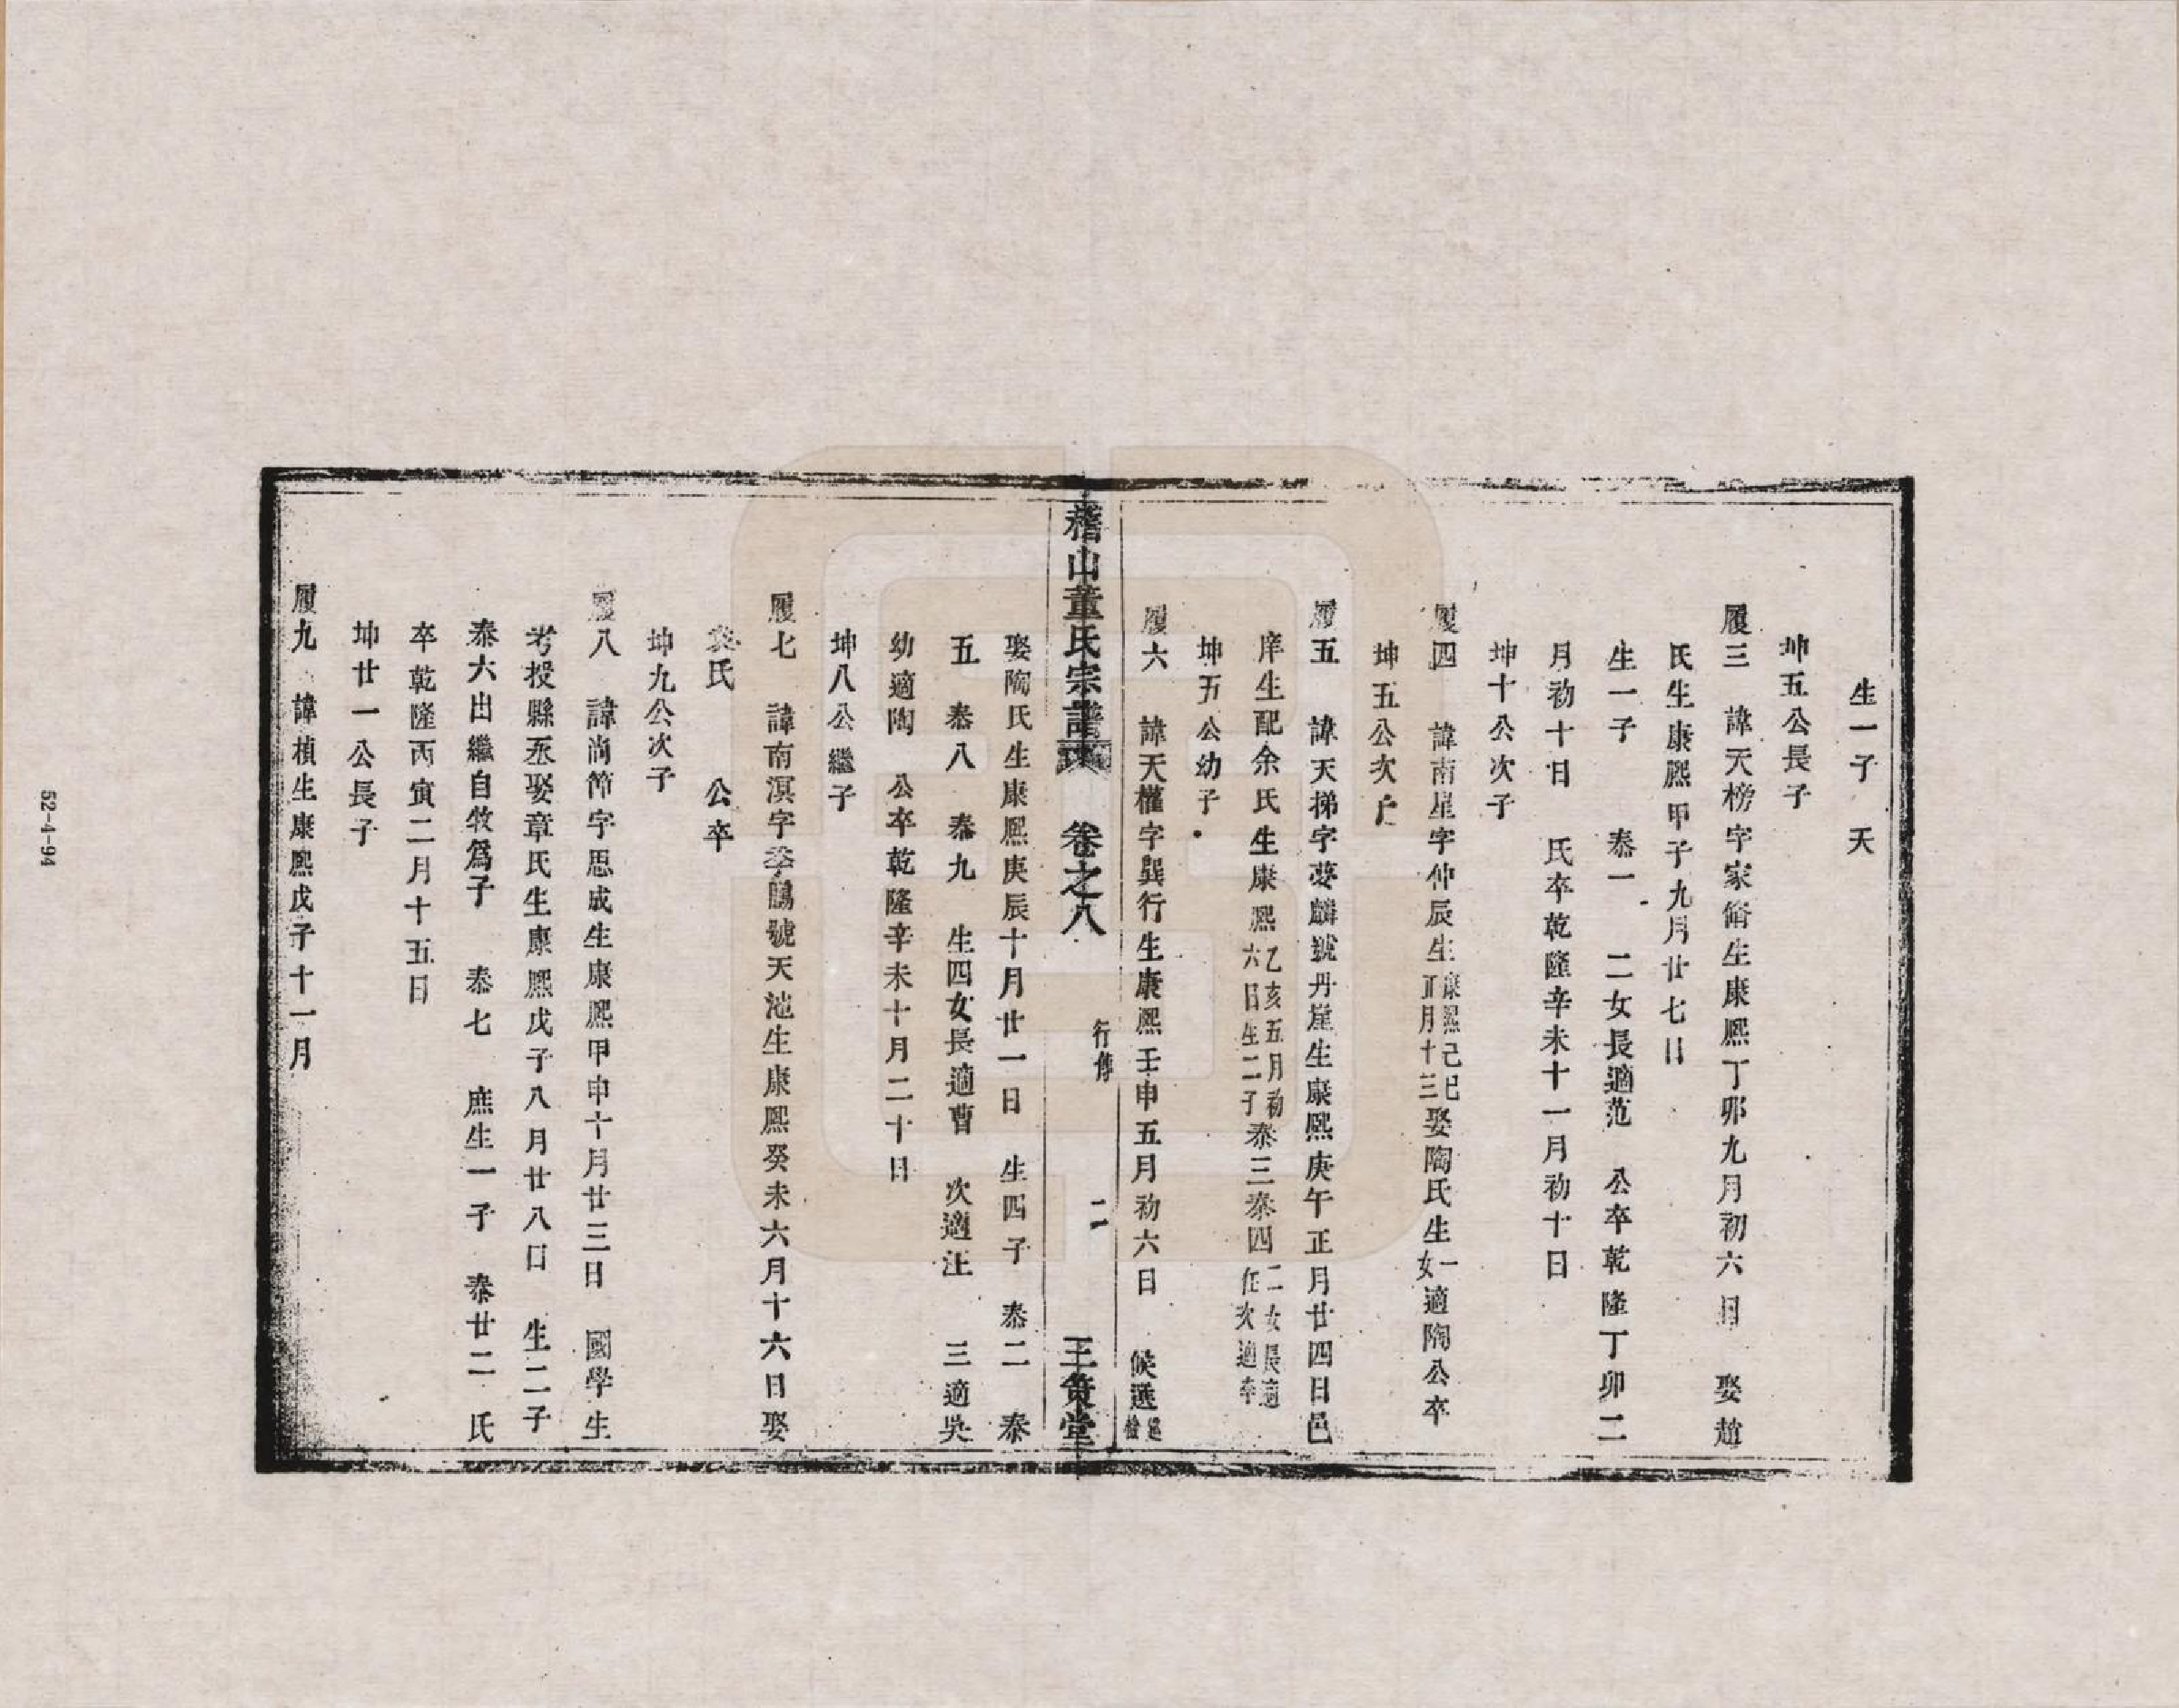 生一子　天
坤五公長子
履三　諱天榜字家脩生康熙丁卯九月初六日　娶趙
氏生康熙甲子九月廿七日
生一子　泰一　二女長適范　公卒乾隆丁卯二
月初十日　氏卒乾隆辛未十一月初十日
坤十公次子
履四　諱南星字仲辰生康熙己巳正月十三娶陶氏生一女適陶公卒
坤五公次子
履五　諱天梯字夢麟號丹崖生康熙庚午正月廿四日邑
庠生配余氏生康熙乙亥五月初六日生二子泰三泰四二女長適任次適
坤五公幼子
履六　諱天權字巽行生康熙壬申五月初六日　候選
稽山董氏宗譜　卷之八　行傳　二　三策堂
娶陶氏生康熙庚辰十月廿一日　生四子　泰二　泰
五　泰八　泰九　生四女長適曹　次適汪　三適吳
幼適陶　公卒乾隆辛未十月二十日
坤八公繼子
履七　諱南溟字季鵬號天池生康熙癸未六月十六日娶
袁氏　公卒
坤九公次子
履八　諱尚節字思成生康熙甲申十月廿三日　國學生
考授縣丞娶章氏生康熙戊子八月廿八日　生二子
泰六出繼自牧爲子　泰七　庶生一子　泰廿二　氏
卒乾隆丙寅二月十五日
坤廿一公長子
履九　諱楨生康熙戊子十一月
52-4-94